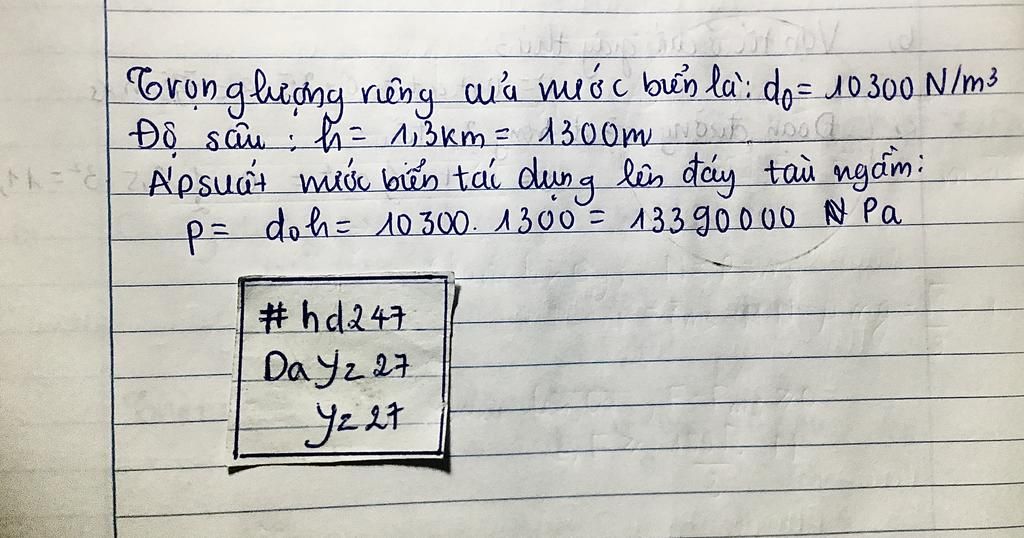 Trọng lượng riêng của nước biển là: d₀ = 10300 N/m³
Độ sâu : h = 1,3km = 1300m
Áp suất nước biển tác dụng lên đáy tàu ngầm:
p = d₀h = 10300. 1300 = 13390000 N Pa
# hd247
Da yz 27
yz 27